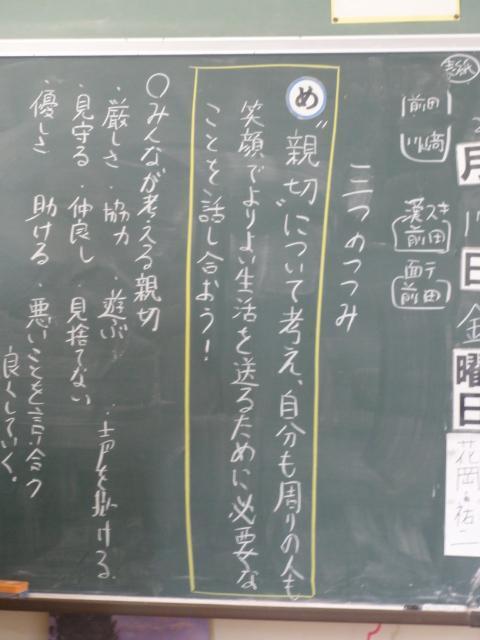 表紙
月
日
金
曜
日
花岡
前田
川崎
漢スキ
前田
前田
三つのつつみ
め
"親切"について考え、自分も周りの人も
笑顔でよりよい生活を送るために必要な
ことを話し合おう!
○みんなが考える親切
・厳しさ ・協力 遊ぶ ・声を掛ける
・見守る ・仲良し 見捨てない
・優しさ 助ける 悪いことを言い合う
良くしていく。